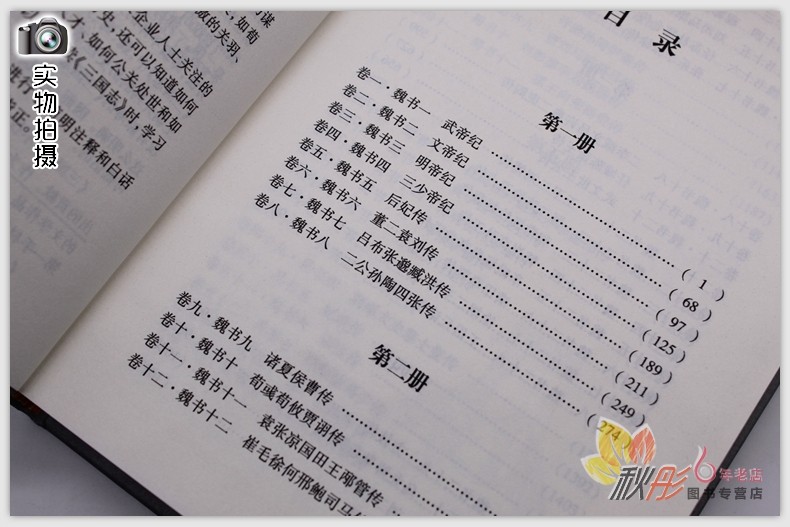 实物拍摄
谋
敌的关羽、
企业人士关注的
史,还可以知道如何
才,如何公关处世和如
《三国志》时,学习
明注释和白话
目录
第一册
卷一·魏书一 武帝纪 (1)
卷二·魏书二 文帝纪 (68)
卷三·魏书三 明帝纪 (97)
卷四·魏书四 三少帝纪 (125)
卷五·魏书五 后妃传 (189)
卷六·魏书六 董二袁刘传 (211)
卷七·魏书七 吕布张邈臧洪传 (249)
卷八·魏书八 二公孙陶四张传 (274)
第二册
卷九·魏书九 诸夏侯曹传
卷十·魏书十 荀彧荀攸贾诩传
卷十一·魏书十一 袁张凉国田王邴管传
卷十二·魏书十二 崔毛徐何邢鲍司马
秋彤 6年老店
图书专营店